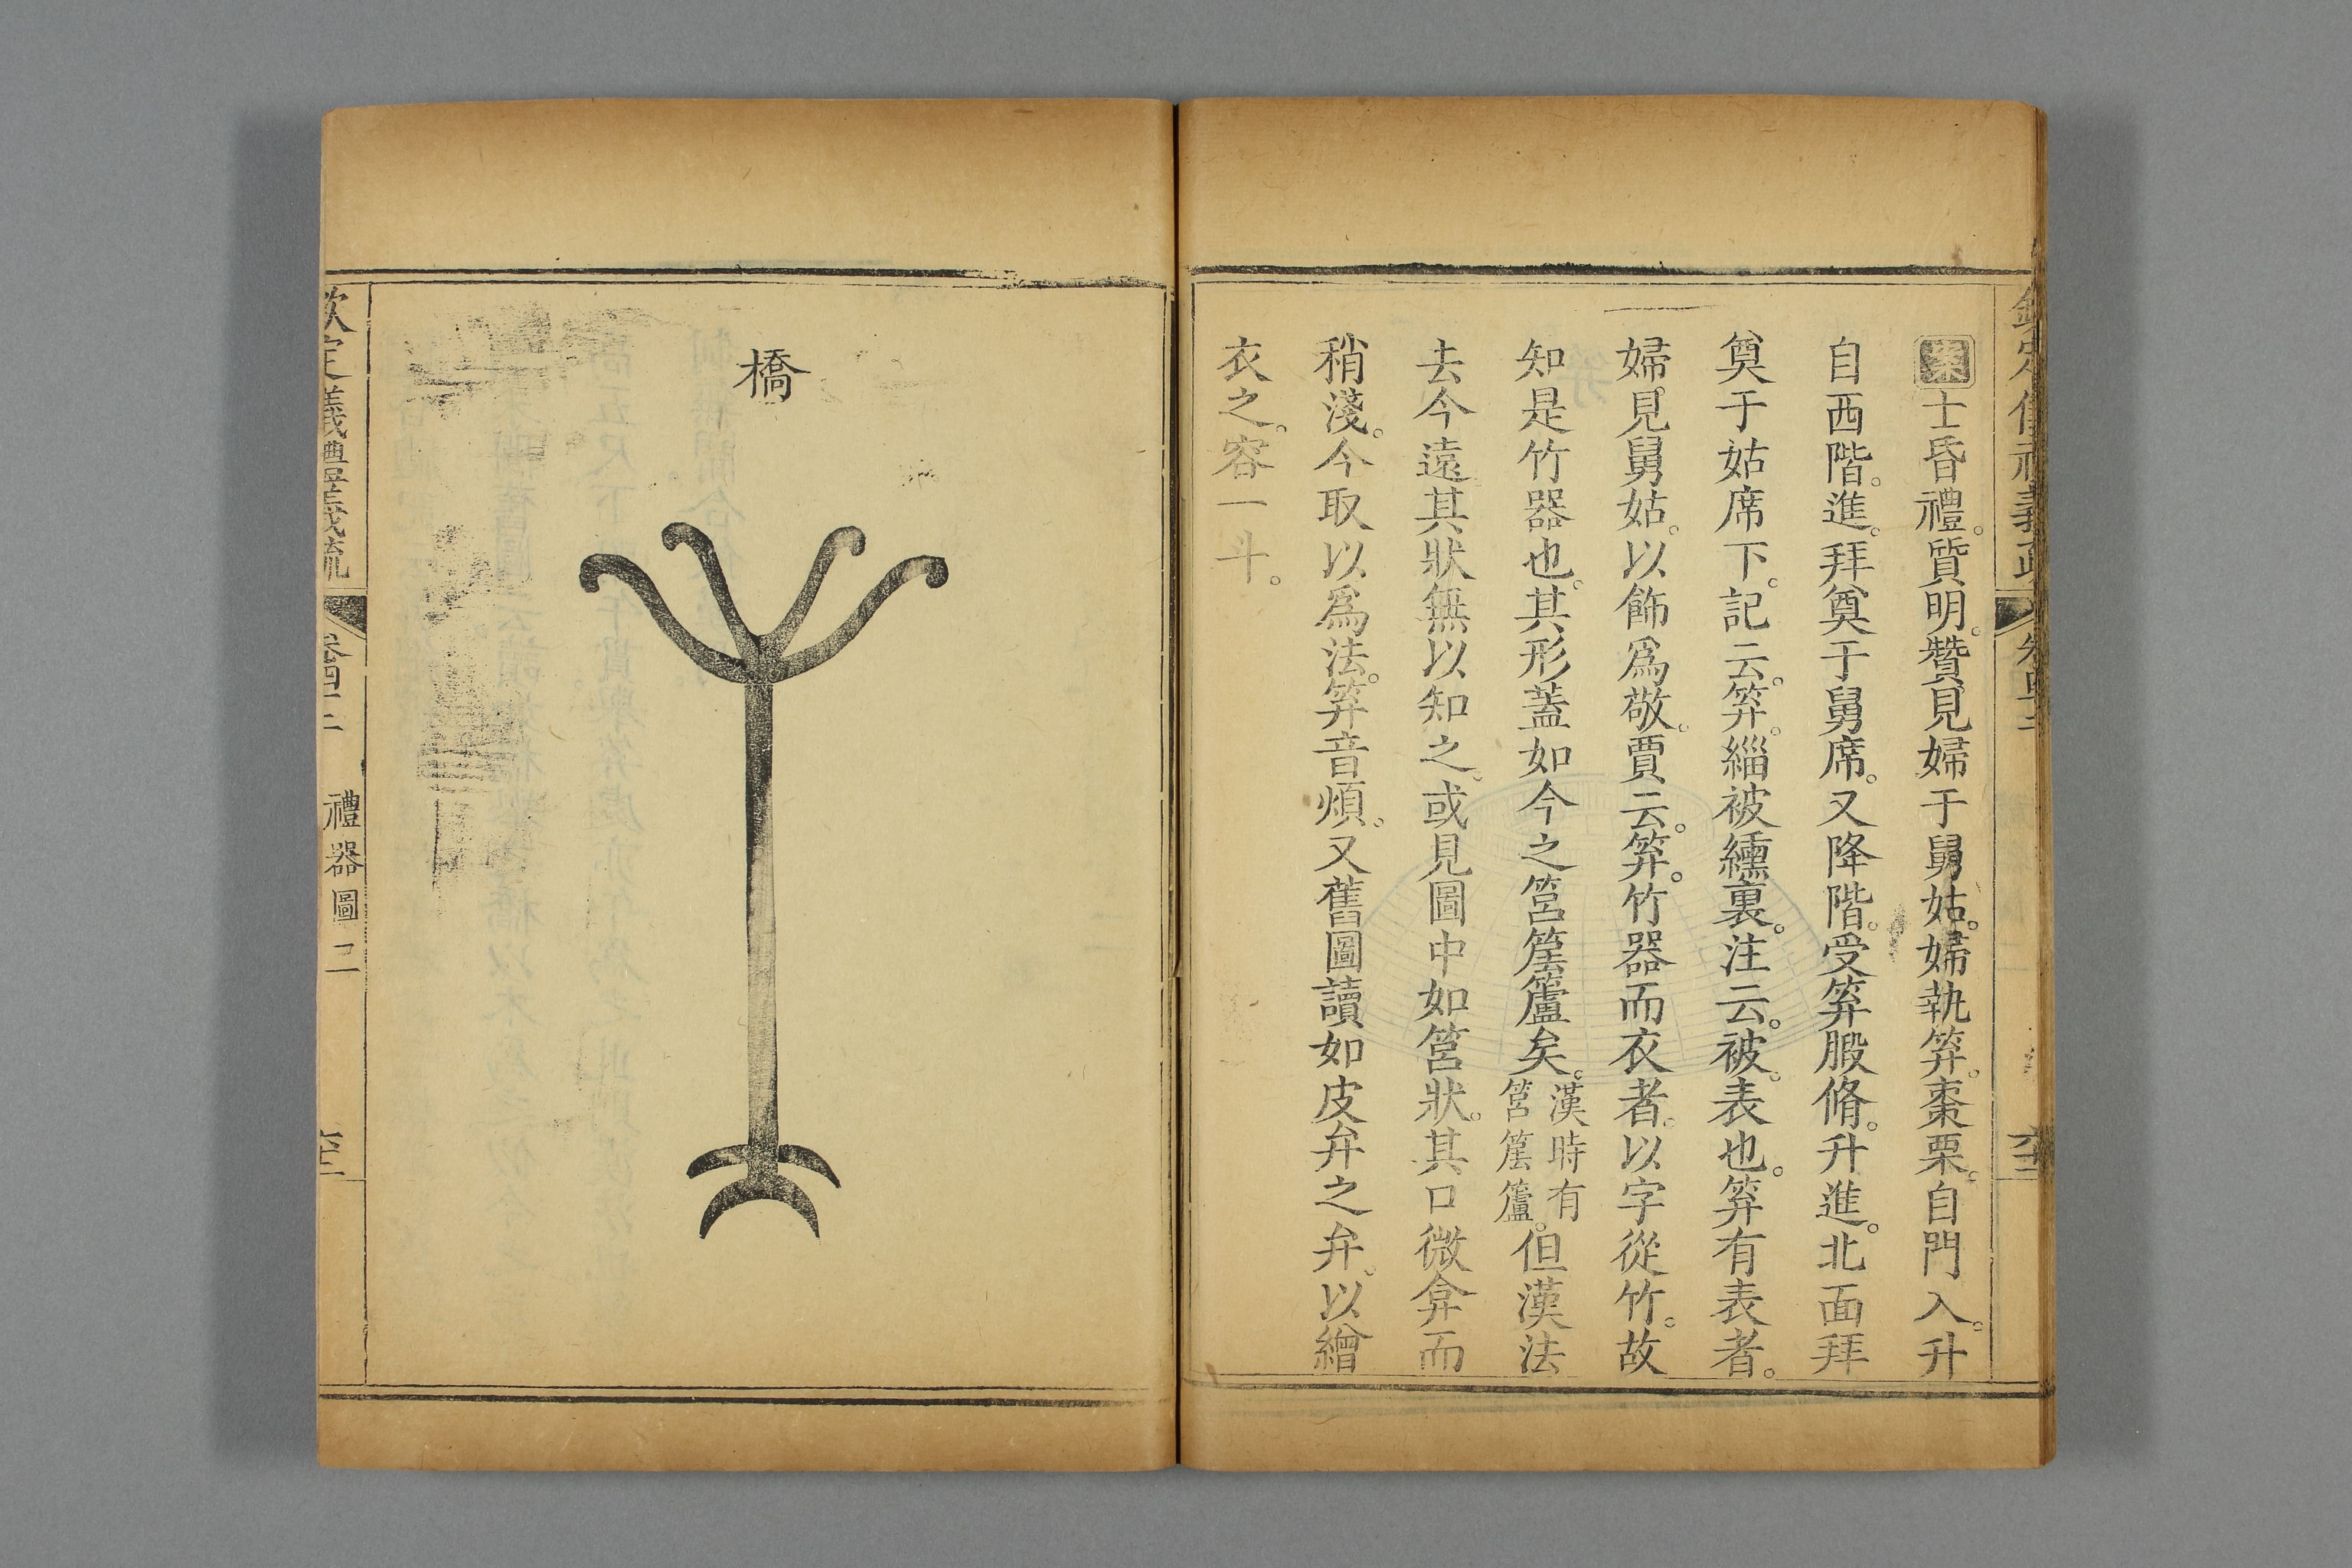 欽定儀禮義疏
卷四十二
案士昏禮。質明。贊見婦于舅姑。婦執笲。棗栗。自門入。升
自西階。進。拜奠于舅席。又降階。受笲腶脩。升進。北面拜
奠于姑席下。記云。笲。緇被纁裏。注云。被。表也。笲有表者。
婦見舅姑。以飾爲敬。賈云。笲。竹器而衣者。以字從竹。故
知是竹器也。其形蓋如今之筥𥬔籚矣。漢時有筥𥬔籚。但漢法
去今遠。其狀無以知之。或見圖中如筥狀。其口微弇而
稍淺。今取以爲法。笲音煩。又舊圖讀如皮弁之弁。以繒
衣之。容一斗。
橋
欽定儀禮義疏
卷四十二
禮器圖二